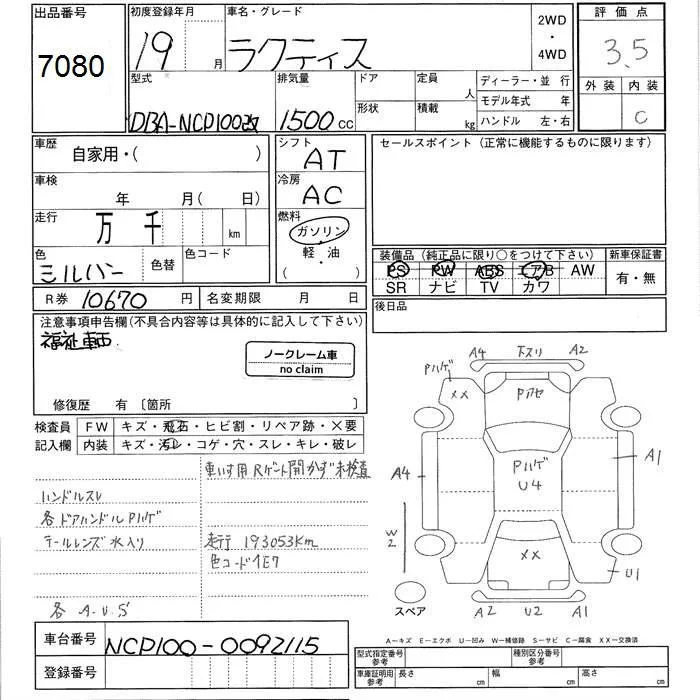 出品番号
7080
初度登録年月
19 月
車名・グレード
ラクティス
2WD
・
4WD
評価点
3.5
外装 内装
C
型式
DBA-NCP100改
排気量
1500 cc
ドア
形状
定員
人
積載
kg
ディーラー・並 行
モデル年式 年
ハンドル 左・右
車歴
自家用・( )
車検
年 月( 日)
走行
万 千 km
色
シルバー
色替
色コード
シフト
AT
冷房
AC
燃料
ガソリン
軽・油
( )
セールスポイント (正常に機能するものに限ります)
装備品 (純正品に限り○をつけて下さい)
PS PW ABS エアB AW
SR ナビ TV カワ
新車保証書
有・無
後日品
R券 10670 円
名変期限 月 日
注意事項申告欄(不具合内容等は具体的に記入して下さい)
福祉車両
ノークレーム車
no claim
修復歴 有 〔箇所 〕
検査員
記入欄
FW キズ・飛石・ヒビ割・リペア跡・X要
内装 キズ・汚レ・コゲ・穴・スレ・キレ・破レ
車いす用Rゲート開かず未検査
ハンドルスレ
各ドアハンドルPハゲ
テールレンズ水入り
走行 193053Km
色コード1E7
各 A.U.S
A4 下スリ A2
Pハゲ
XX
Pアセ
A4
Pハゲ
U4
A1
W2
XX
U1
スペア
A2 U2 A1
A-キズ E-エクボ U-凹み W-補修跡 S-サビ C-腐食 XX-交換済
車台番号
NCP100-0092115
登録番号
型式指定番号
参考
種別区分番号
参考
車庫証明用
参考
長さ cm
幅 cm
高さ cm